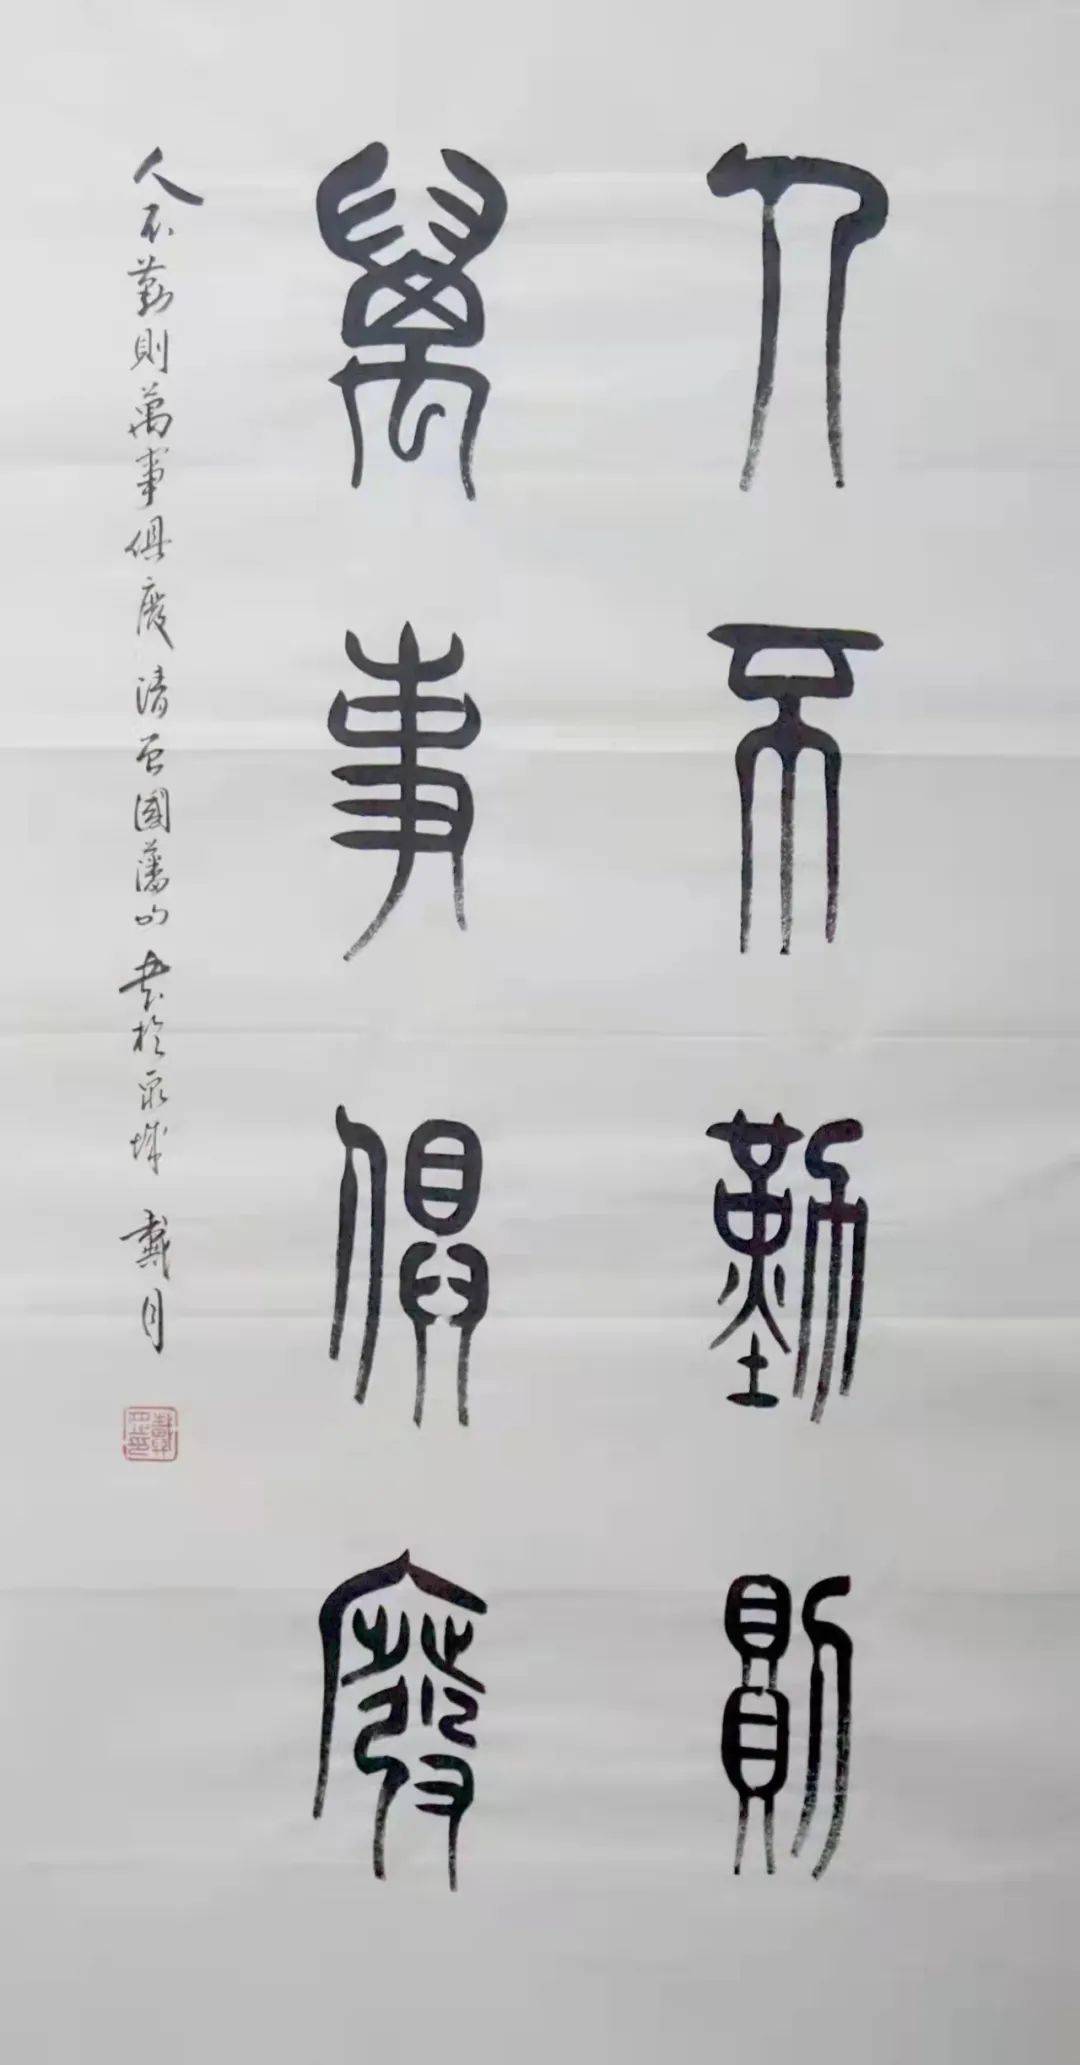 人不勤則
萬事俱廢
人不勤則萬事俱廢清曾國藩句書於泉城戴月